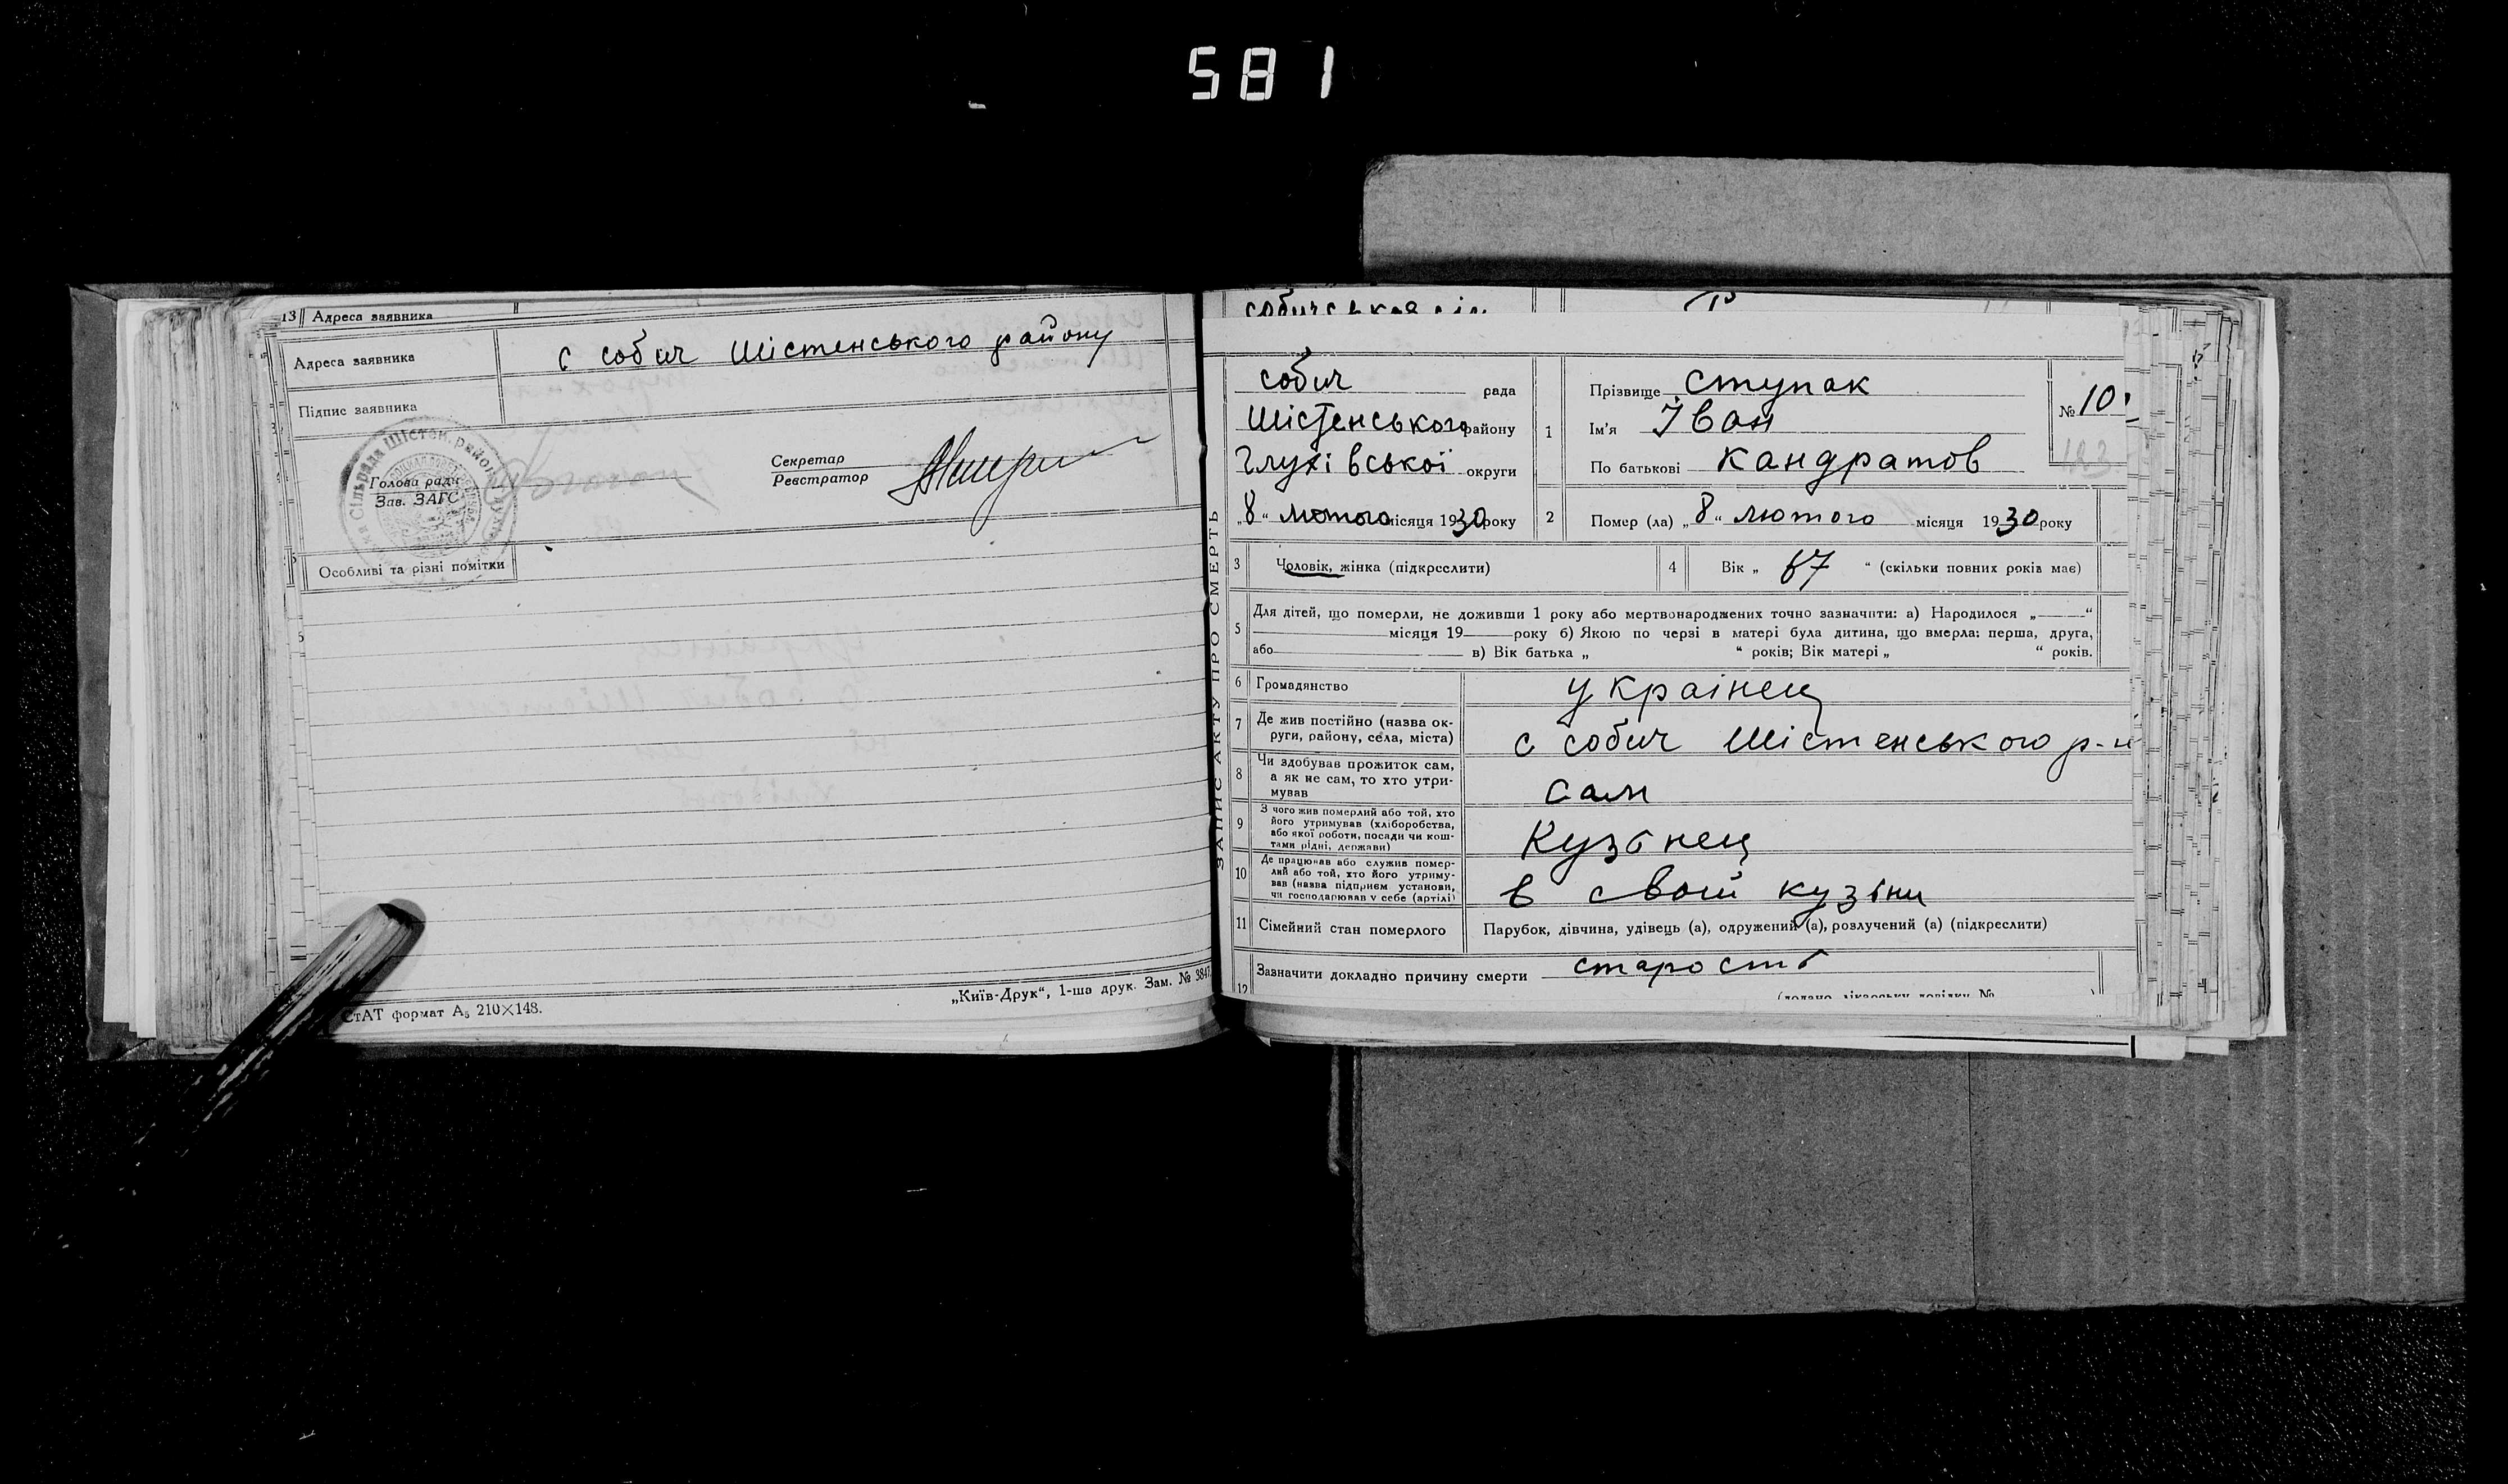 581
13 Адреса заявника
Адреса заявника с собич Шістенського району
Підпис заявника
Голова ради
Зав. ЗАГС
Секретар
Реєстратор
Особливі та різні помітки
СтАТ формат А5 210×148.
„Київ-Друк“, 1-ша друк. Зам. № 3847.
ЗАПИС АКТУ ПРО СМЕРТЬ
собич рада
Шістенського району
Глухівської округи
„8“ лютого місяця 1930 року
1 Прізвище Ступак
Ім'я Іван
По батькові Кандратов
№ 10
2 Помер (ла) „8“ лютого місяця 1930 року
3 Чоловік, жінка (підкреслити)
4 Вік „67“ (скільки повних років має)
5 Для дітей, що померли, не доживши 1 року або мертвонароджених точно зазначити: а) Народилося „ “
місяця 19 року б) Якою по черзі в матері була дитина, що вмерла: перша, друга,
або в) Вік батька „ “ років; Вік матері „ “ років.
6 Громадянство українец
7 Де жив постійно (назва ок-
руги, району, села, міста) с собич Шістенського р-н
8 Чи здобував прожиток сам,
а як не сам, то хто утри-
мував сам
9 З чого жив померлий або той, хто
його утримував (хліборобства,
або якої роботи, посади чи кош-
тами рідні, держави) Кузьнец
10 Де працював або служив помер-
лий або той, хто його утриму-
вав (назва підприєм установи,
чи господарював у себе (артілі) в своїй кузьни
11 Сімейний стан померлого Парубок, дівчина, удівець (а), одружений (а), розлучений (а) (підкреслити)
12 Зазначити докладно причину смерти старость
(додано лікарську довідку №